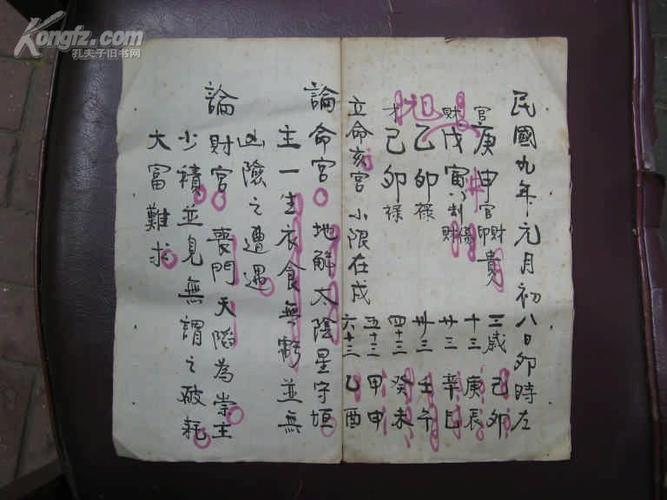 Kongfz.com
孔夫子旧书网
民國九年元月初八日卯時左
官庚申官印財貴
財戊寅劫傷財
日乙卯祿
才己卯祿
立命亥宮小限在戌
三歲己卯
十三庚辰
廿三辛巳
卅三壬午
四十三癸未
五十三甲申
六十三乙酉
論命宮地解太陰星守垣
主一生衣食無虧並無
凶險之遭遇
論財宮喪門天陷為崇主
少積並見無謂之破耗
大富難求